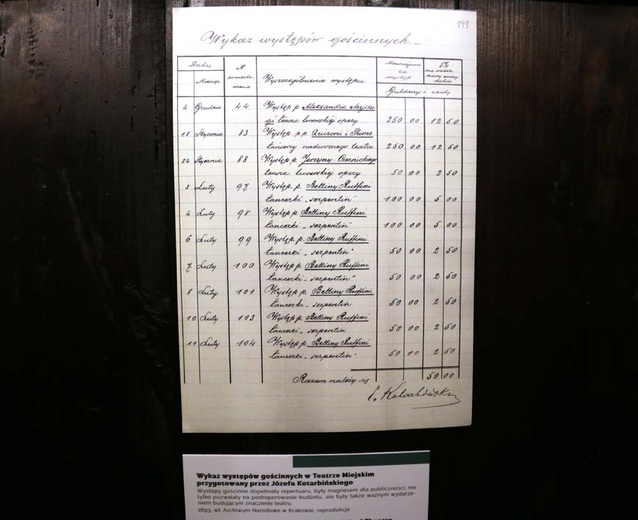 149
Wykaz występów gościnnych.
Data
Miesiąc
N
Wyszczególnienie występu
występ
5%
Guldeny i centy
4 Grudnia 44 Występ p. Aleksandra
tenora lwowskiej opery 250 00 12 50
18 Stycznia 83 Występ p.p.
tancerzy nadwornego teatru 250 00 12 50
24 Stycznia 88 Występ p.
tenora lwowskiej opery 50 00 2 50
3 Luty 97 Występ p. Bettiny Ruffini
tancerki "serpentin" 100 00 5 00
4 Luty 98 Występ p. Bettiny Ruffini
tancerki "serpentin" 100 00 5 00
6 Luty 99 Występ p. Bettiny Ruffini
tancerki "serpentin" 50 00 2 50
7 Luty 100 Występ p. Bettiny Ruffini
tancerki "serpentin" 50 00 2 50
8 Luty 101 Występ p. Bettiny Ruffini
tancerki "serpentin 50 00 2 50
10 Luty 103 Występ p. Bettiny Ruffini
tancerki "serpentin 50 00 2 50
11 Luty 104 Występ p. Bettiny Ruffini
tancerki "serpentin" 50 00 2 50
Razem należy się 50 00
Kotarbiński
Wykaz występów gościnnych w Teatrze Miejskim
przygotowany przez Józefa Kotarbińskiego
Występy gościnne dopełniały repertuaru, były magnesem dla publiczności; nie
tylko pozwalały na podreperowanie budżetu, ale były także ważnym wydarze-
niem budującym znaczenie teatru.
1893, wł. Archiwum Narodowe w Krakowie, reprodukcja